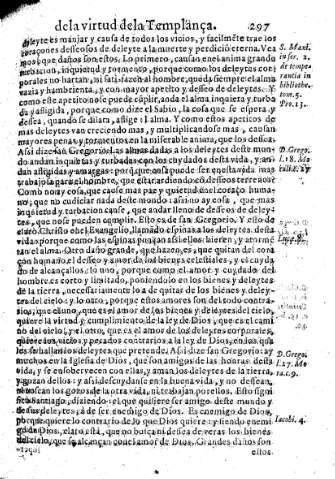 de la virtud de la Templança. 297
deleyte es manjar y causa de todos los vicios, y facilmēte trae los
coraçones desseosos de deleyte a la muerte y perdicion eterna. Vea
mos que daños son estos. Lo primero, causan en el anima grande
turbacion, inquietud y tormento, porque como los deleytes cor
porales no hartan, ni satisfazen al hombre, queda siempre el alma
vazia y hambrienta, y con mayor apetito y desseo de deleytes. Y
como este apetito no se puede cūplir, anda el alma inquieta y turba
da y afligida, porque como dize el Sabio, la cosa que se espera y
dessea, quando se dilata, aflige el alma. Y como estos apetitos de
mas deleytes van creciendo mas, y multiplicandose mas, causan
mayores penas y tormentos en la miserable anima, que los dessea.
Assi dize san Gregorio: Las almas dadas a los deleytes deste mun
do andan inquietas y turbadas con los cuydados desta vida, y an-
dan afligidas y
trabajosa para el hombre, que estar ardiendo
Como no ay cosa, que cause mas paz y quietud en el coraçō huma
no, que no cudiciar nada deste mundo: assi no ay cosa, que mas
inquietud y turbacion cause, que andar lleno de desseos de deley-
tes, que no se pueden cumplir. Esto es de san Gregorio. Y esto de
claró Christo en el Evangelio, llamado espinas a los deleytes desta
vida: porque como las espinas punçan
tan el alma. Otro daño grande, que hazen, es, que quitan del cora
con humano el desseo y amor de los bienes celestiales, y el cuyda
do de alcançallos: lo uno, porque como el amor y cuydado del
hombre es corto y limitado, poniendolo en los bienes y deleytes
de la tierra, necessariamente lo a de quitar de los bienes y deley-
tes del cielo: y lo otro, porque estos amores son del todo contra-
rios, que el uno, que es el amor de los bienes y deleytes del cielo,
quiere la virtud y cumplimiento de la ley de Dios, que es el cami
no del cielo: y el otro, que es el amor de los deleytes corporales,
quiere los vicios y pecados contrarios a la ley de Dios, en los qua
les se hallan los deleytes que pretende. Assi dize san Gregorio: ay
muchos en la Iglesia de Dios, que son amigos de las honras desta
vida, y se ensobervecen con ellas, y aman los deleytes de la tierra,
y gozan dellos: y assi descuydanse en la buena vida, y no dessean,
ni buscan los gozos de la otra vida, ni trabajan por ellos. Esto signi
ficó Santiago, diziendo: el que quisiere ser amigo deste mundo y
de sus deleytes, a de ser enemigo de Dios. Es enemigo de Dios,
porque quiere lo contrario de lo que Dios quiere: y siendo enemi
go de Dios, claro está, que no busca ni dessea de veras los bienes
del cielo, que se alcançan con el amor de Dios. Grandes daños son
estos.
S. Maxi.
in ser. 2.
de tempe-
rantia in
bibliothe-
tom. 5.
Pro. 13.
D. Grego.
l. 18. Mo
D. Grego.
l. 17. Mo
ra. c. 9.
Iacobi. 4.